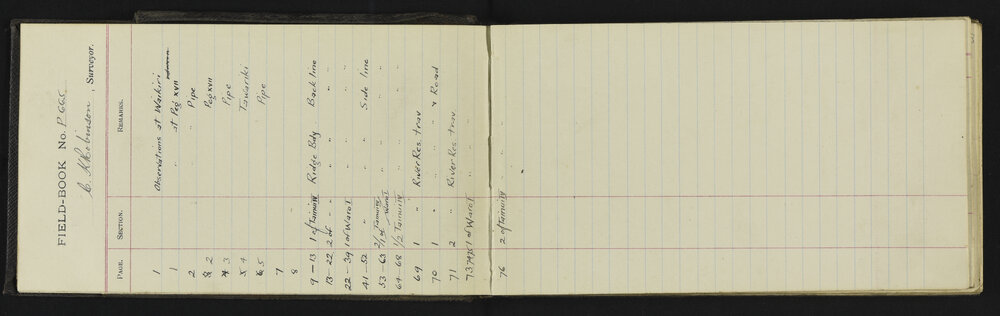 FIELD-BOOK No. P 665
C. K. Robinson, Surveyor.
PAGE. SECTION. REMARKS.
1 Observations at Waikiri
1 " at Peg XVII
2 " Pipe
2 Peg XVII
3 Pipe
4 Tawariki
5 Pipe
7
8
9 – 13 1 of Tainui IV Ridge Bdy Back line
13 – 22 2 of " " "
22 – 39 1 of Waro I " "
41 – 52 " " Side line
53 – 63 " "
64 – 68 1/2 Tainui IV " "
69 1 River Res. trav
70 1 " " & Road
71 2 River Res trav
73.74.75 1 of Waro I "
76 2 of Tainui IV " "